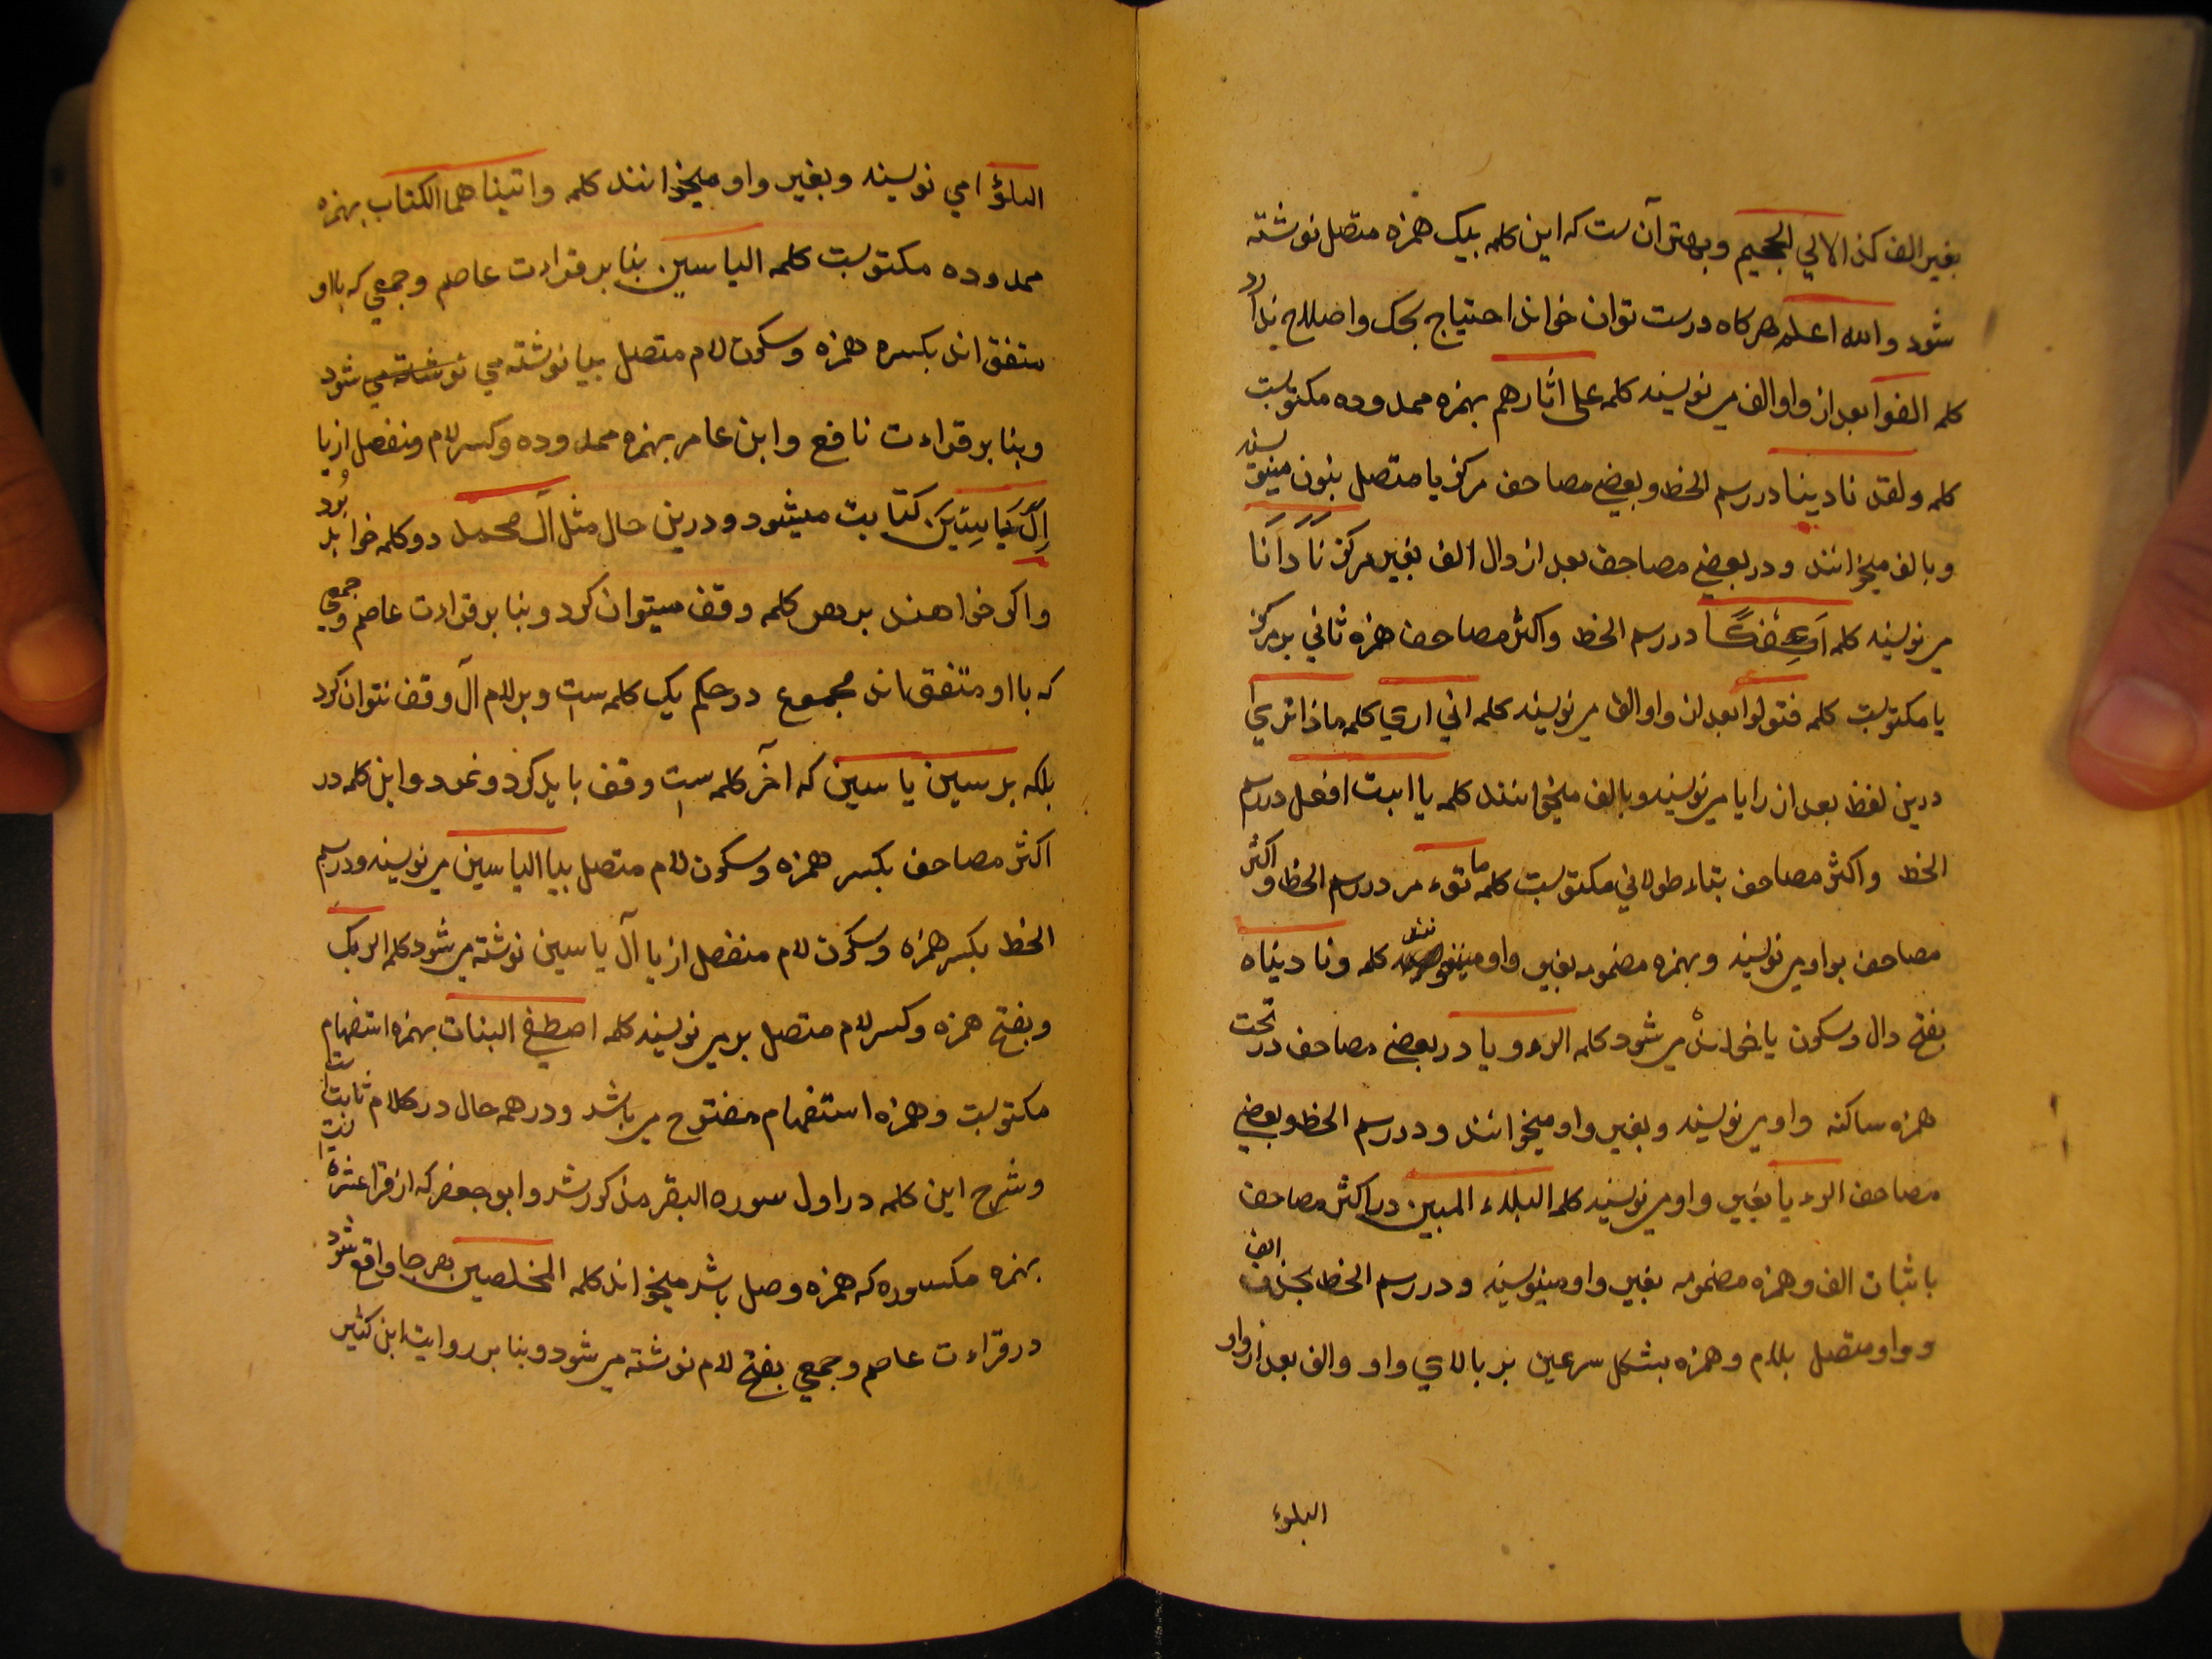 بغیر الف کذا لالي الجحیم وبهتر آن ست که این کلمه بیک همزه متصل نوشته
شود والله اعلم هر کاه درست توان خواند احتیاج بحک واصلاح ندارد
کلمه الفوا بعد از واو الف می نویسند کلمه علی اثارهم بهمزه ممدوده مکتوبست
کلمه ولقد نادینا در رسم الخط وبعضی مصاحف مرکز یا متصل بنون مینویسند
وبالف میخوانند ودر بعضی مصاحف بعد از دال الف بغیر مرکز نادانا
می نویسند کلمه اَئِفکًا در رسم الخط واکثر مصاحف همزه ثاني بر مرکز
یا مکتوبست کلمه فتولوا بعد از واو الف می نویسند کلمه اني اري کلمه ماذا تري
درین لفظ بعد از را یا می نویسند وبالف میخوانند کلمه یا ابت افعل در رسم
الخط واکثر مصاحف بتاء طولاني مکتوبست کلمه ما تؤمر در رسم الخط واکثر
مصاحف بواو می نویسند وبهمزه مضمومه بغیر واو کلمه ونادیناه
بفتح دال وسکون یا خوانده می شود کلمه الرءویا در بعضی مصاحف در تحت
همزه ساکنه واو می نویسند وبغیر واو میخوانند ودر رسم الخط وبعضی
مصاحف الرءیا بغیر واو می نویسند کلمه البلاء المبین در اکثر مصاحف
باثبات الف وهمزه مضمومه بغیر واو مینویسند ودر رسم الخط بحذف الف
وواو متصل بلام وهمزه بشکل سرعین بر بالاي واو والف بعد از واو
البلوء
البلؤا مي نویسند وبغیر واو میخوانند کلمه واتیناهما الکتاب بهمزه
ممدوده مکتوبست کلمه الیاسین بنا بر قراءت عاصم وجمعي که با او
متفق اند بکسره همزه وسکون لام متصل بیا نوشته مي نوشته مي شود
وبنا بر قراءت نافع وابن عامر بهمزه ممدوده وکسر لام ومنفصل از یا
اٰلِ یَاسِینَ کتابت میشود ودرین حال مثل آل محمد دو کلمه خواهد بود
واکر خواهند بر هر کلمه وقف میتوان کرد وبنا بر قراءت عاصم وجمعي
که با او متفق اند مجموع در حکم یک کلمه ست وبر لام آل وقف نتوان کرد
بلکه بر سین یاسین که آخر کلمه ست وقف باید کرد ونمود واین کلمه در
اکثر مصاحف بکسر همزه وسکون لام متصل بیا الیاسین می نویسند ودر رسم
الخط بکسر همزه وسکون لام منفصل از یا آل یاسین نوشته می شود کلمه الربک
وبفتح همزه وکسر لام متصل بر می نویسند کلمه اصطفي البنات بهمزه استفهام
مکتوبست وهمزه استفهام مفتوح می باشد ودر همه حال در کلام ثابت
وشرح این کلمه در اول سوره البقر مذکور شد وابو جعفر که از قراء عشره
بهمزه مکسوره که همزه وصل باشد میخواند کلمه المخلصین هر جا واقع شود
در قراءت عاصم وجمعي بفتح لام نوشته می شود وبنا بر روایت ابن کثیر